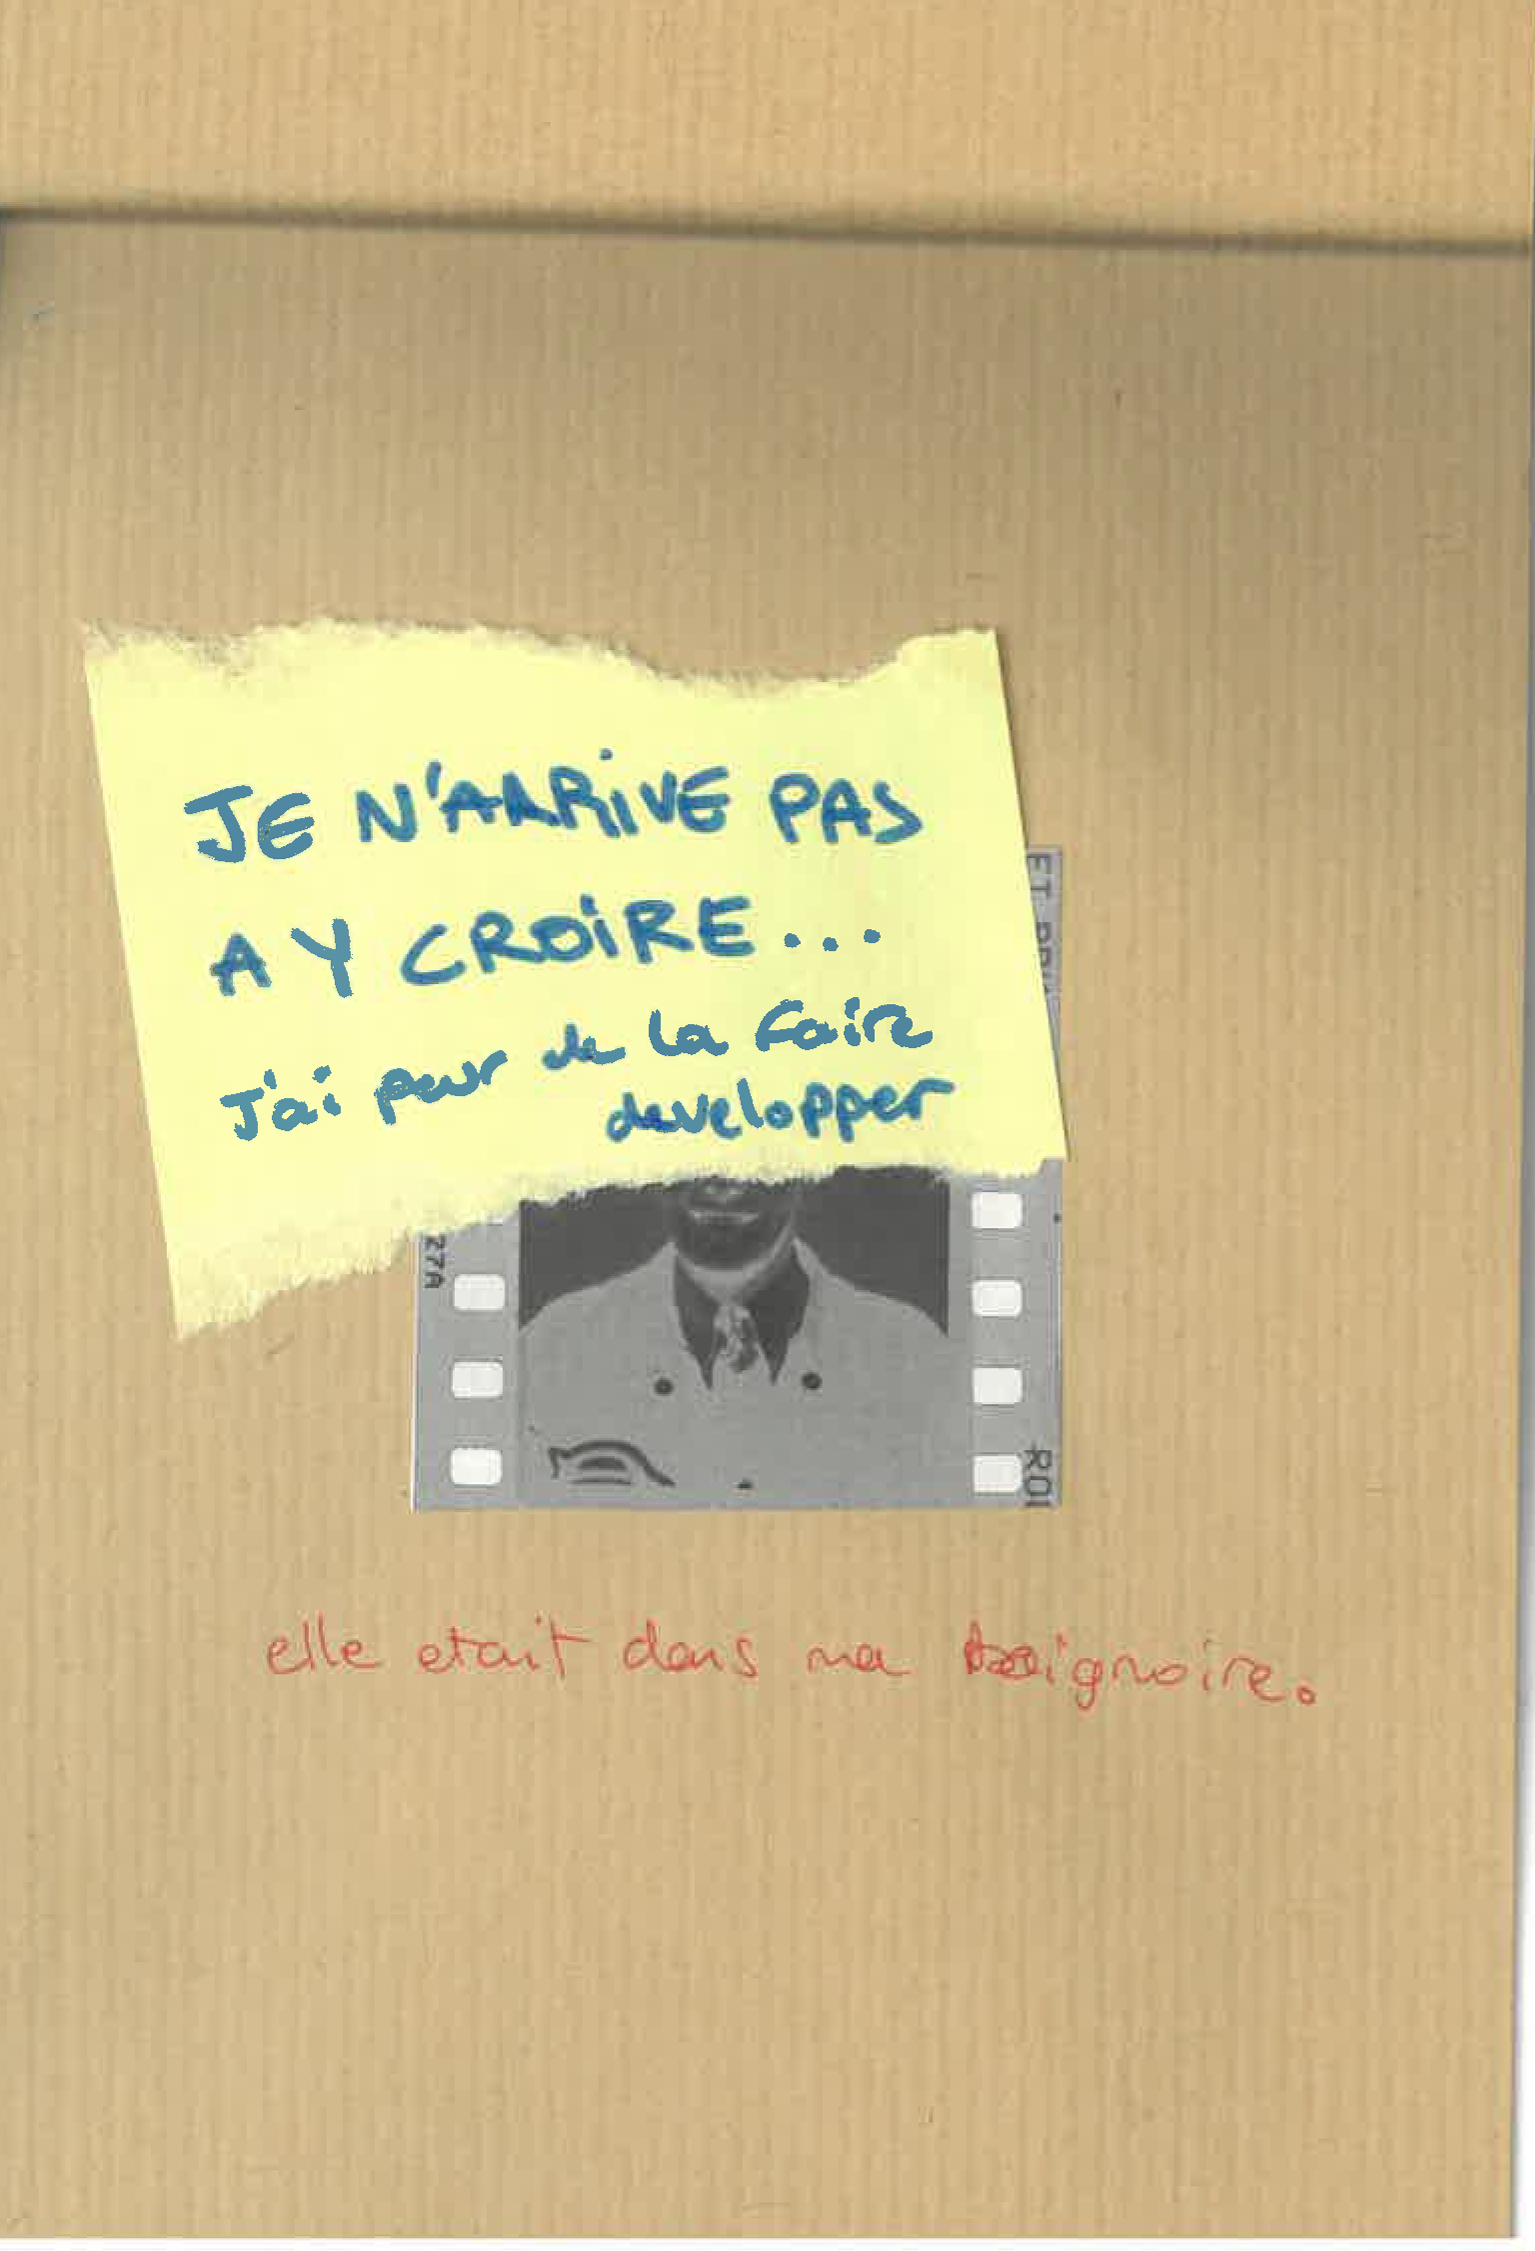 JE N'ARRIVE PAS
A Y CROIRE...
J'ai peur de la faire
developper
ET
27A
ROI
elle etait dans ma baignoire.